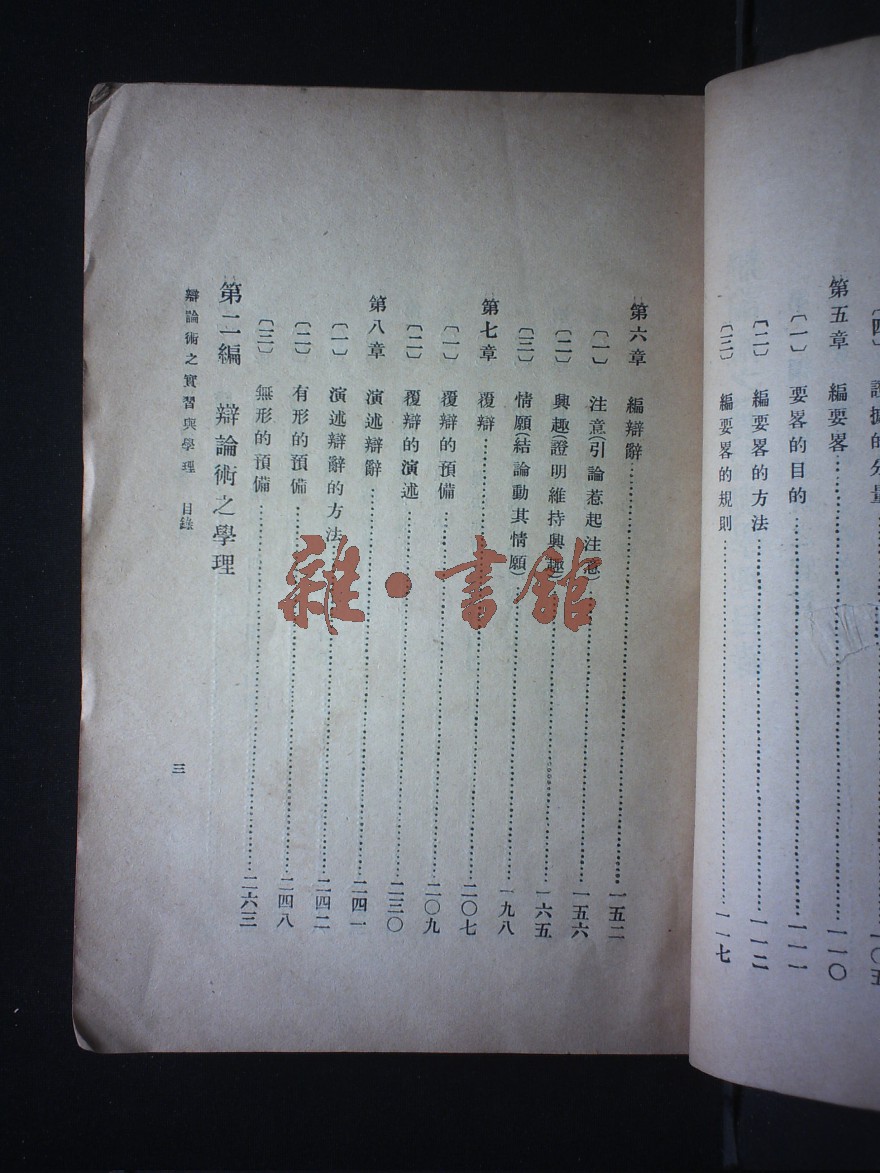 〔四〕 證據的分量……一〇五
第五章 編要畧……一一〇
〔一〕 要畧的目的……一一一
〔二〕 編要畧的方法……一一二
〔三〕 編要畧的規則……一一七
第六章 編辯辭……一五二
〔一〕 注意(引論惹起注意)……一五六
〔二〕 興趣(證明維持興趣)……一六五
〔三〕 情願(結論動其情願)……一九八
第七章 覆辯……二〇七
〔一〕 覆辯的預備……二〇九
〔二〕 覆辯的演述……二三〇
第八章 演述辯辭……二四一
〔一〕 演述辯辭的方法……二四二
〔二〕 有形的預備……二四八
〔三〕 無形的預備……二六三
第二編 辯論術之學理
辯論術之實習與學理 目錄
三
雜·書館